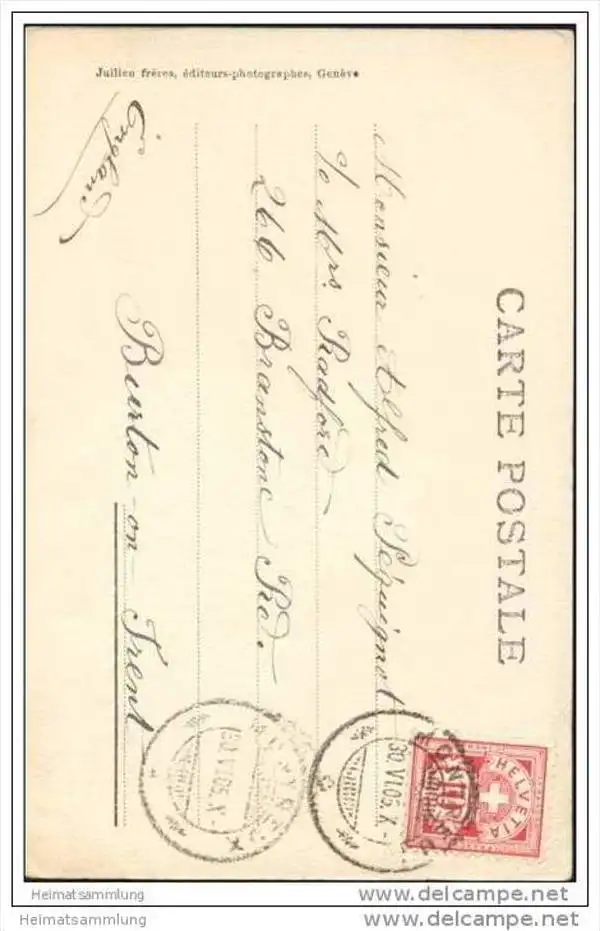 Jullien frères, éditeurs-photographes, Genève
CARTE POSTALE
HELVETIA
30.VI.05.X
MONTREUX
30.VI.05.X
Monsieur Alfred Péquignot
c/o Mrs. Radford
266 Branstone Rd.
Burton-on-Trent
England
Heimatsammlung
Heimatsammlung
delcampe.net
delcampe.net